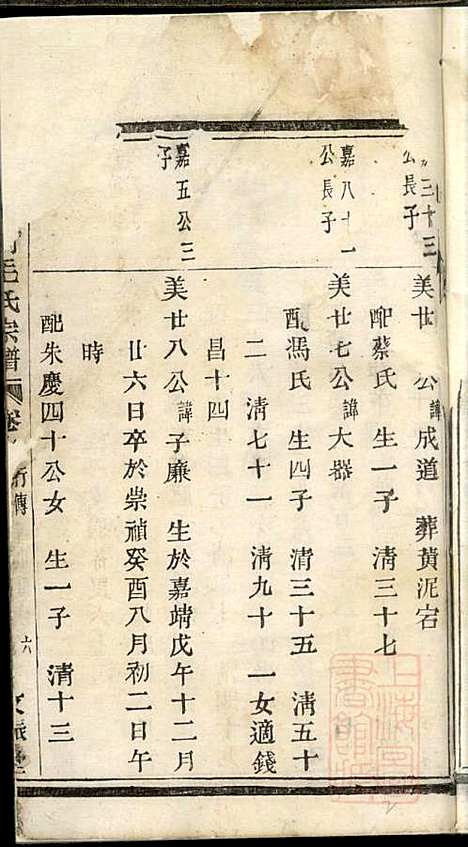 三十三
公長子
美廿 公諱成道 葬黃泥宕
配蔡氏 生一子 淸三十七
嘉八十一
公長子
美廿七公諱大器
配馮氏 生四子 淸三十五 淸五十
二 淸七十一 淸九十 一女適錢
昌十四
嘉五公三
子
美廿八公諱子廉 生於嘉靖戊午十二月
廿六日卒於崇禎癸酉八月初二日午
時
配朱慶四十公女 生一子 淸十三
毛氏宗譜 卷 行傳 六